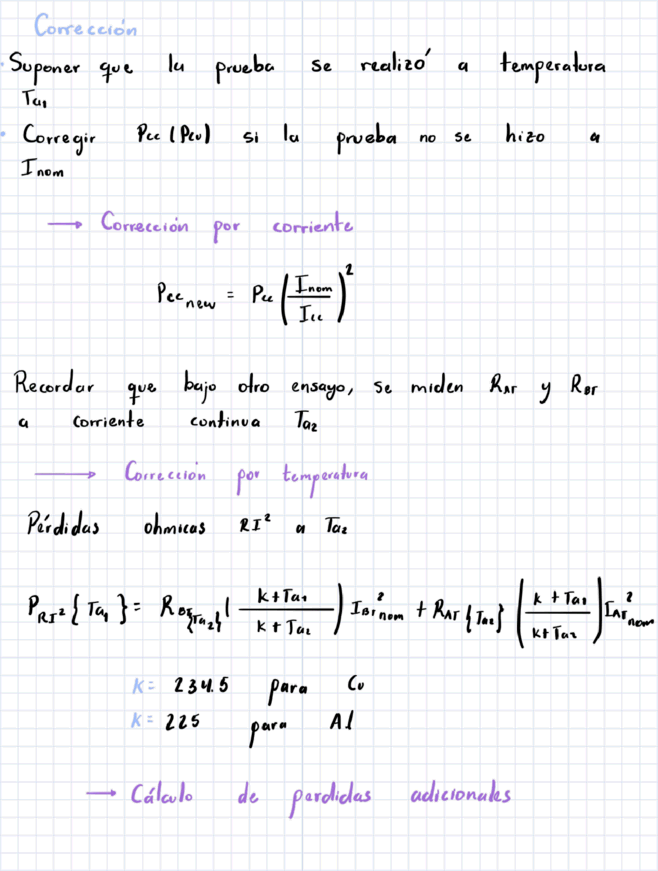 Corrección
Suponer que la prueba se realizó a temperatura
Ta₁
• Corregir Pcc (Pcu) si la prueba no se hizo a
Inom
→ Corrección por corriente
Pcc new = Pcc (Inom / Icc)²
Recordar que bajo otro ensayo, se miden RAT y RBT
a corriente continua Ta₂
→ Corrección por temperatura
Pérdidas ohmicas RI² a Ta₂
P RI² {Ta₁} = R BT {Ta₂} ( (k + Ta₁) / (k + Ta₂) ) I BT nom ² + R AT {Ta₂} ( (k + Ta₁) / (k + Ta₂) ) I AT nom ²
K = 234.5 para Cu
K = 225 para Al
→ Cálculo de perdidas adicionales